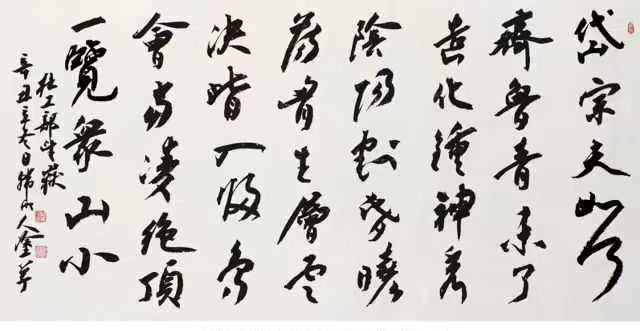 岱宗夫如何
齊魯青未了
造化鍾神秀
陰陽割昏曉
蕩胷生層雲
決眥入歸鳥
會當凌絕頂
一覽衆山小
杜工部望嶽
辛丑